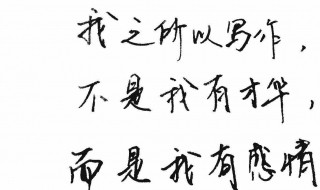 我之所以写作，
不是我有才华，
而是我有感情